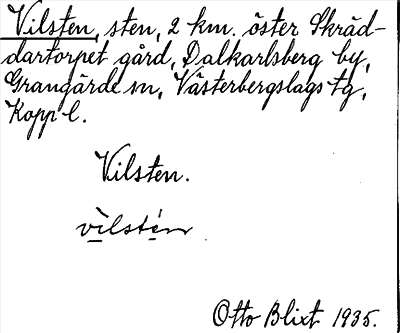 Vilsten, sten, 2 km. öster Skräd-
dartorpet gård, Dalkarlsberg by,
Grangärde sn, Västerbergslags tg,
Kopp l.
Vilsten.
vìlstén
Otto Blixt 1935.